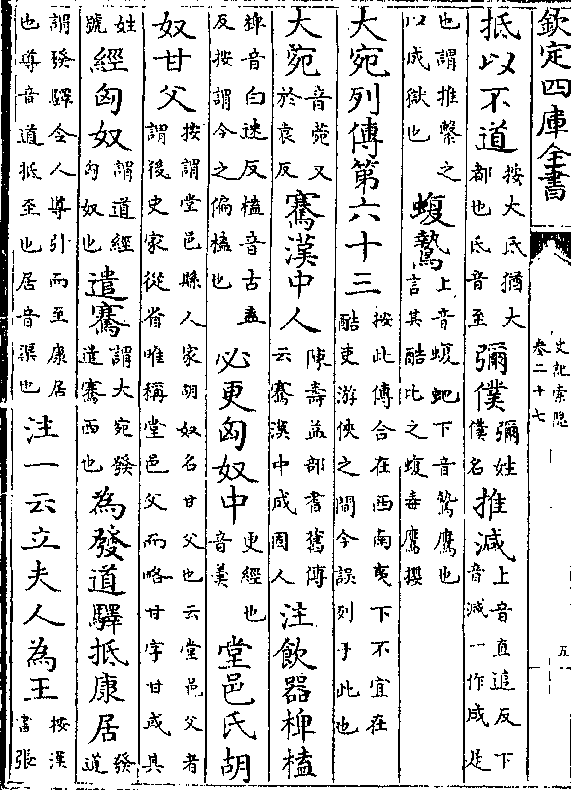 欽定四庫全書
史記索隱
卷二十七
五
抵以不道按大氐猶大都也氐音至彌僕彌姓僕名推減上音直追反下音減一作成是
也謂推繫之以成獄也蝮鷙上音蝮虵下音鷙鷹也言其酷比之蝮毒鷹攫
大宛列傳第六十三按此傳合在西南夷下不宜在酷吏游俠之間今誤列于此也
大菀音菀又於袁反騫漢中人陳壽益部耆舊傳云騫漢中成固人注飲器椑榼
椑音白迷反榼音古盍反按謂今之偏榼也必更匈奴中更經也音羹堂邑氏胡
奴甘父按謂堂邑縣人家胡奴名甘父也云堂邑父者謂後史家從省唯稱堂邑父而略甘字甘或其
姓號經匈奴謂道經匈奴也遣騫謂大宛發遣騫西也為發道驛抵康居發道
謂發驛令人導引而至康居也導音道抵至也居音渠也注一云立夫人為王按漢書張